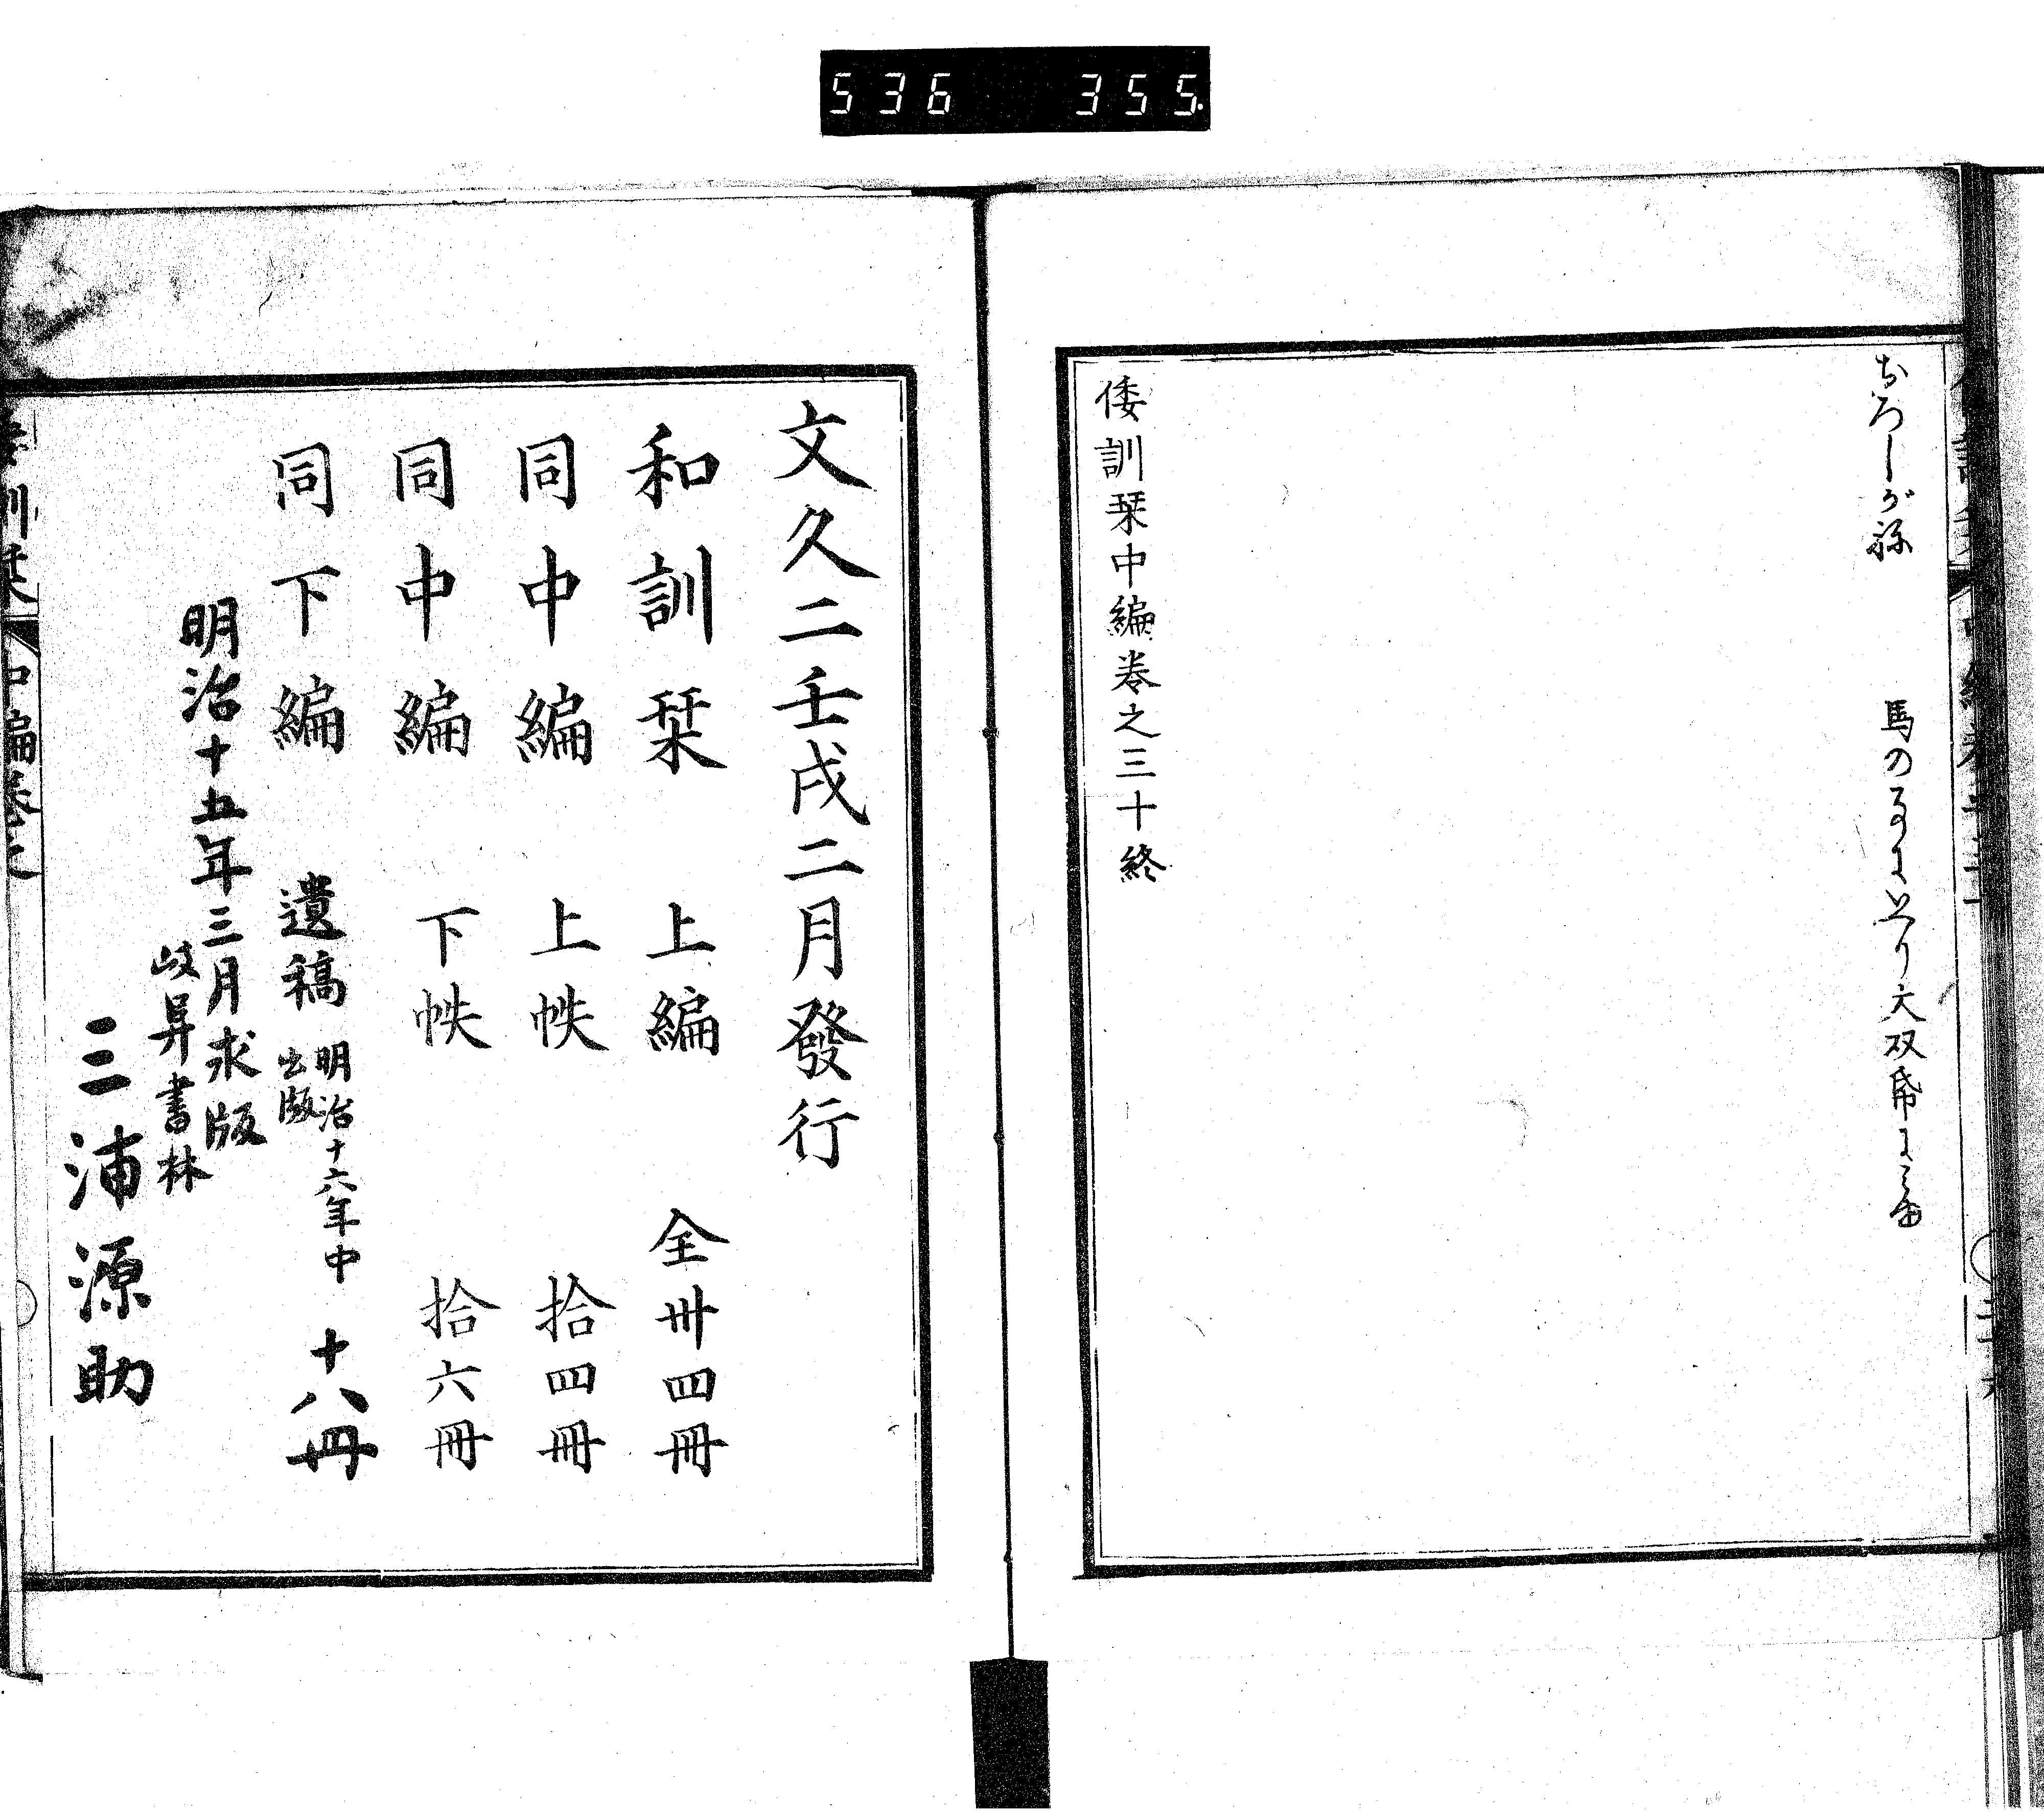 536 355
おろしがね
馬の
大双帋に見ゆ
倭訓栞中編巻之三十終
文久二壬戌二月發行
和訓栞 上編 全卅四冊
同中編 上帙 拾四冊
同中編 下帙 拾六冊
同下編 遺稿 明治十六年中出版 十八冊
明治十五年三月求版
岐阜書林
三浦源助